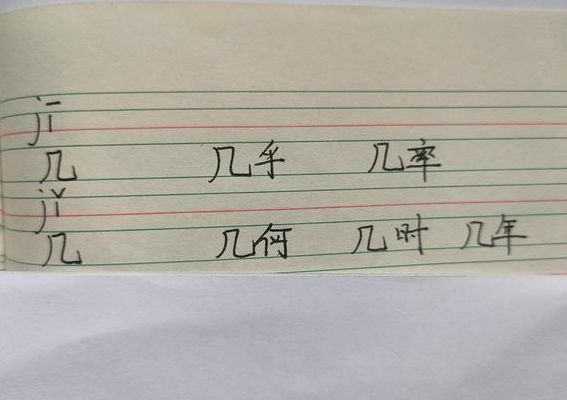 jī
几 几乎 几率
jǐ
几 几何 几时 几年